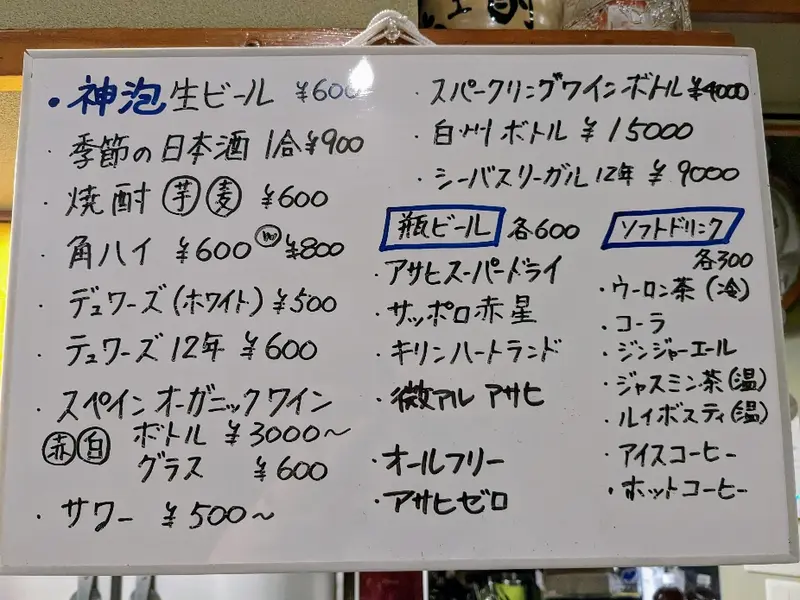 ・神泡生ビール ¥600
・季節の日本酒 1合¥900
・焼酎 芋 麦 ¥600
・角ハイ ¥600 ¥800
・デュワーズ(ホワイト) ¥500
・デュワーズ12年 ¥600
・スペインオーガニックワイン
赤 白 ボトル ¥3000〜
グラス ¥600
・サワー ¥500〜
・スパークリングワインボトル ¥4000
・白州ボトル ¥15000
・シーバスリーガル12年 ¥9000
瓶ビール 各600
・アサヒスーパードライ
・サッポロ赤星
・キリンハートランド
・微アル アサヒ
・オールフリー
・アサヒゼロ
ソフトドリンク
各300
・ウーロン茶(冷)
・コーラ
・ジンジャーエール
・ジャスミン茶(温)
・ルイボスティ(温)
・アイスコーヒー
・ホットコーヒー